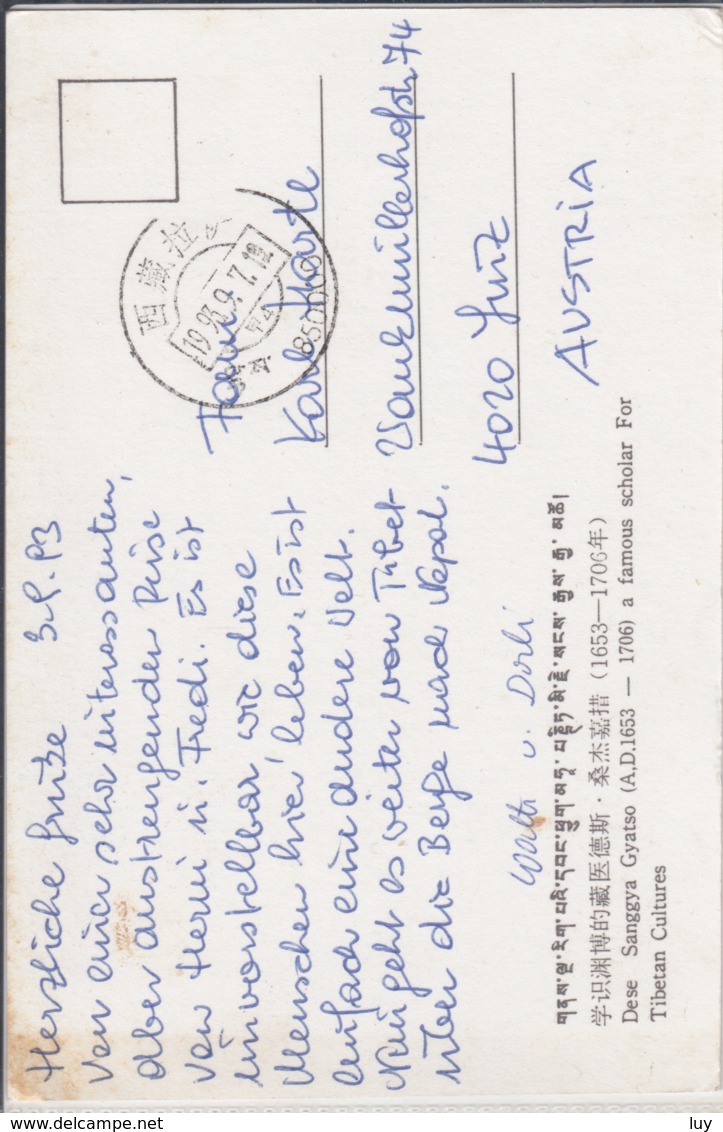 Herzliche Grüße 3.9.93
von einer sehr interessanten,
aber anstrengenden Reise
von Hermi u. Fredi. Es ist
unvorstellbar, wie diese
Menschen hier leben. Es ist
einfach eine andere Welt.
Nun geht es weiter von Tibet
über die Berge nach Nepal.
u. Dirli
Karl
74
4020 Linz
AUSTRIA
西藏拉
1993.9.7.18
850000
གནས་ལྔ་རིག་པའི་དབང་ཕྱུག་མཁས་པ་སྡེ་སྲིད་སངས་རྒྱས་རྒྱ་མཚོ།
学识渊博的藏医德斯·桑杰嘉措（1653—1706年）
Dese Sanggya Gyatso (A,D.1653 — 1706) a famous scholar For
Tibetan Cultures
www.delcampe.net
luy